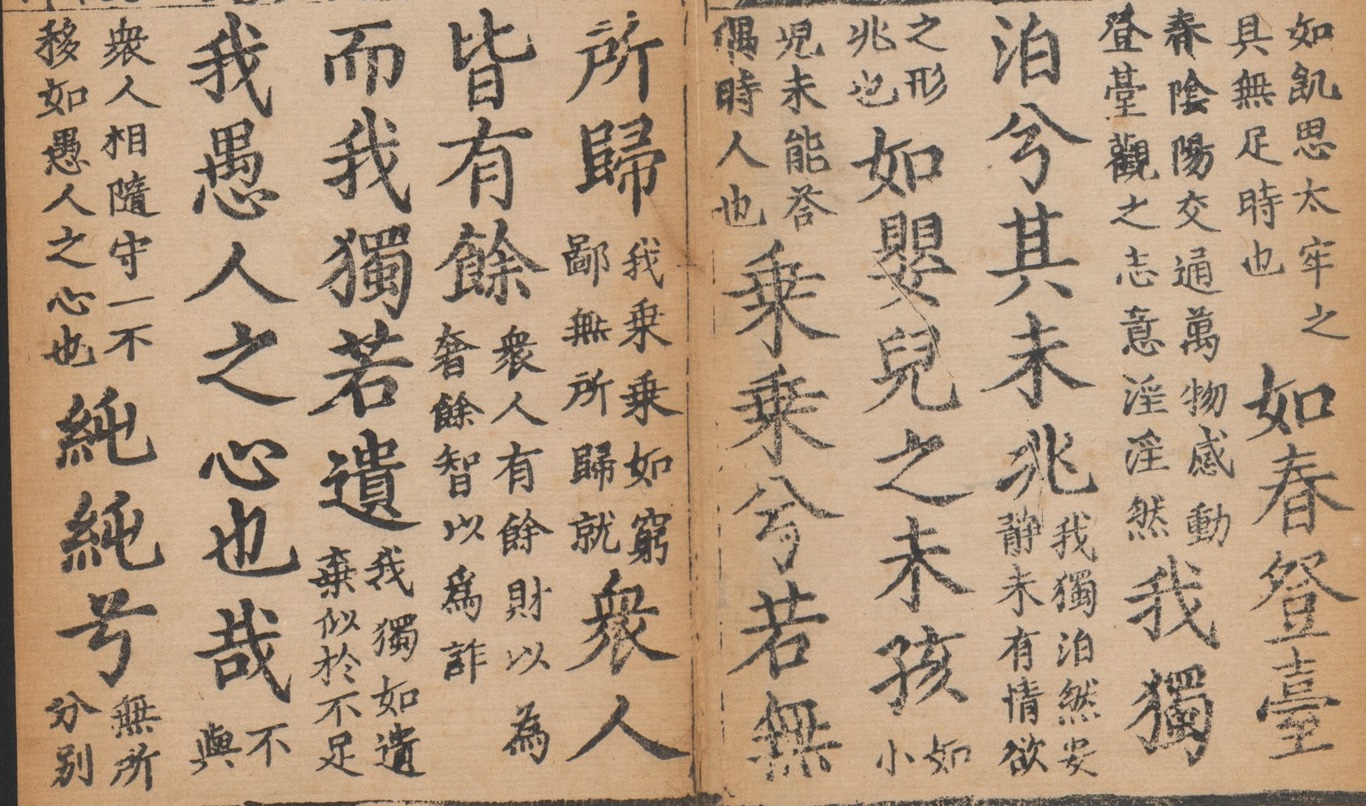 如飢思太牢之具無足時也如春登臺
春陰陽交通萬物感動登臺觀之志意淫淫然我獨
泊兮其未兆我獨泊然安静未有情欲
之形兆也如嬰兒之未孩如小
児未能荅偶時人也乗乗兮若無
所歸我乗乗如窮鄙無所歸就衆人
皆有餘衆人有餘財以為奢餘智以爲詐
而我獨若遺我獨如遺棄似於不足
我愚人之心也哉不與
衆人相隨守一不移如愚人之心也純純兮無所分别